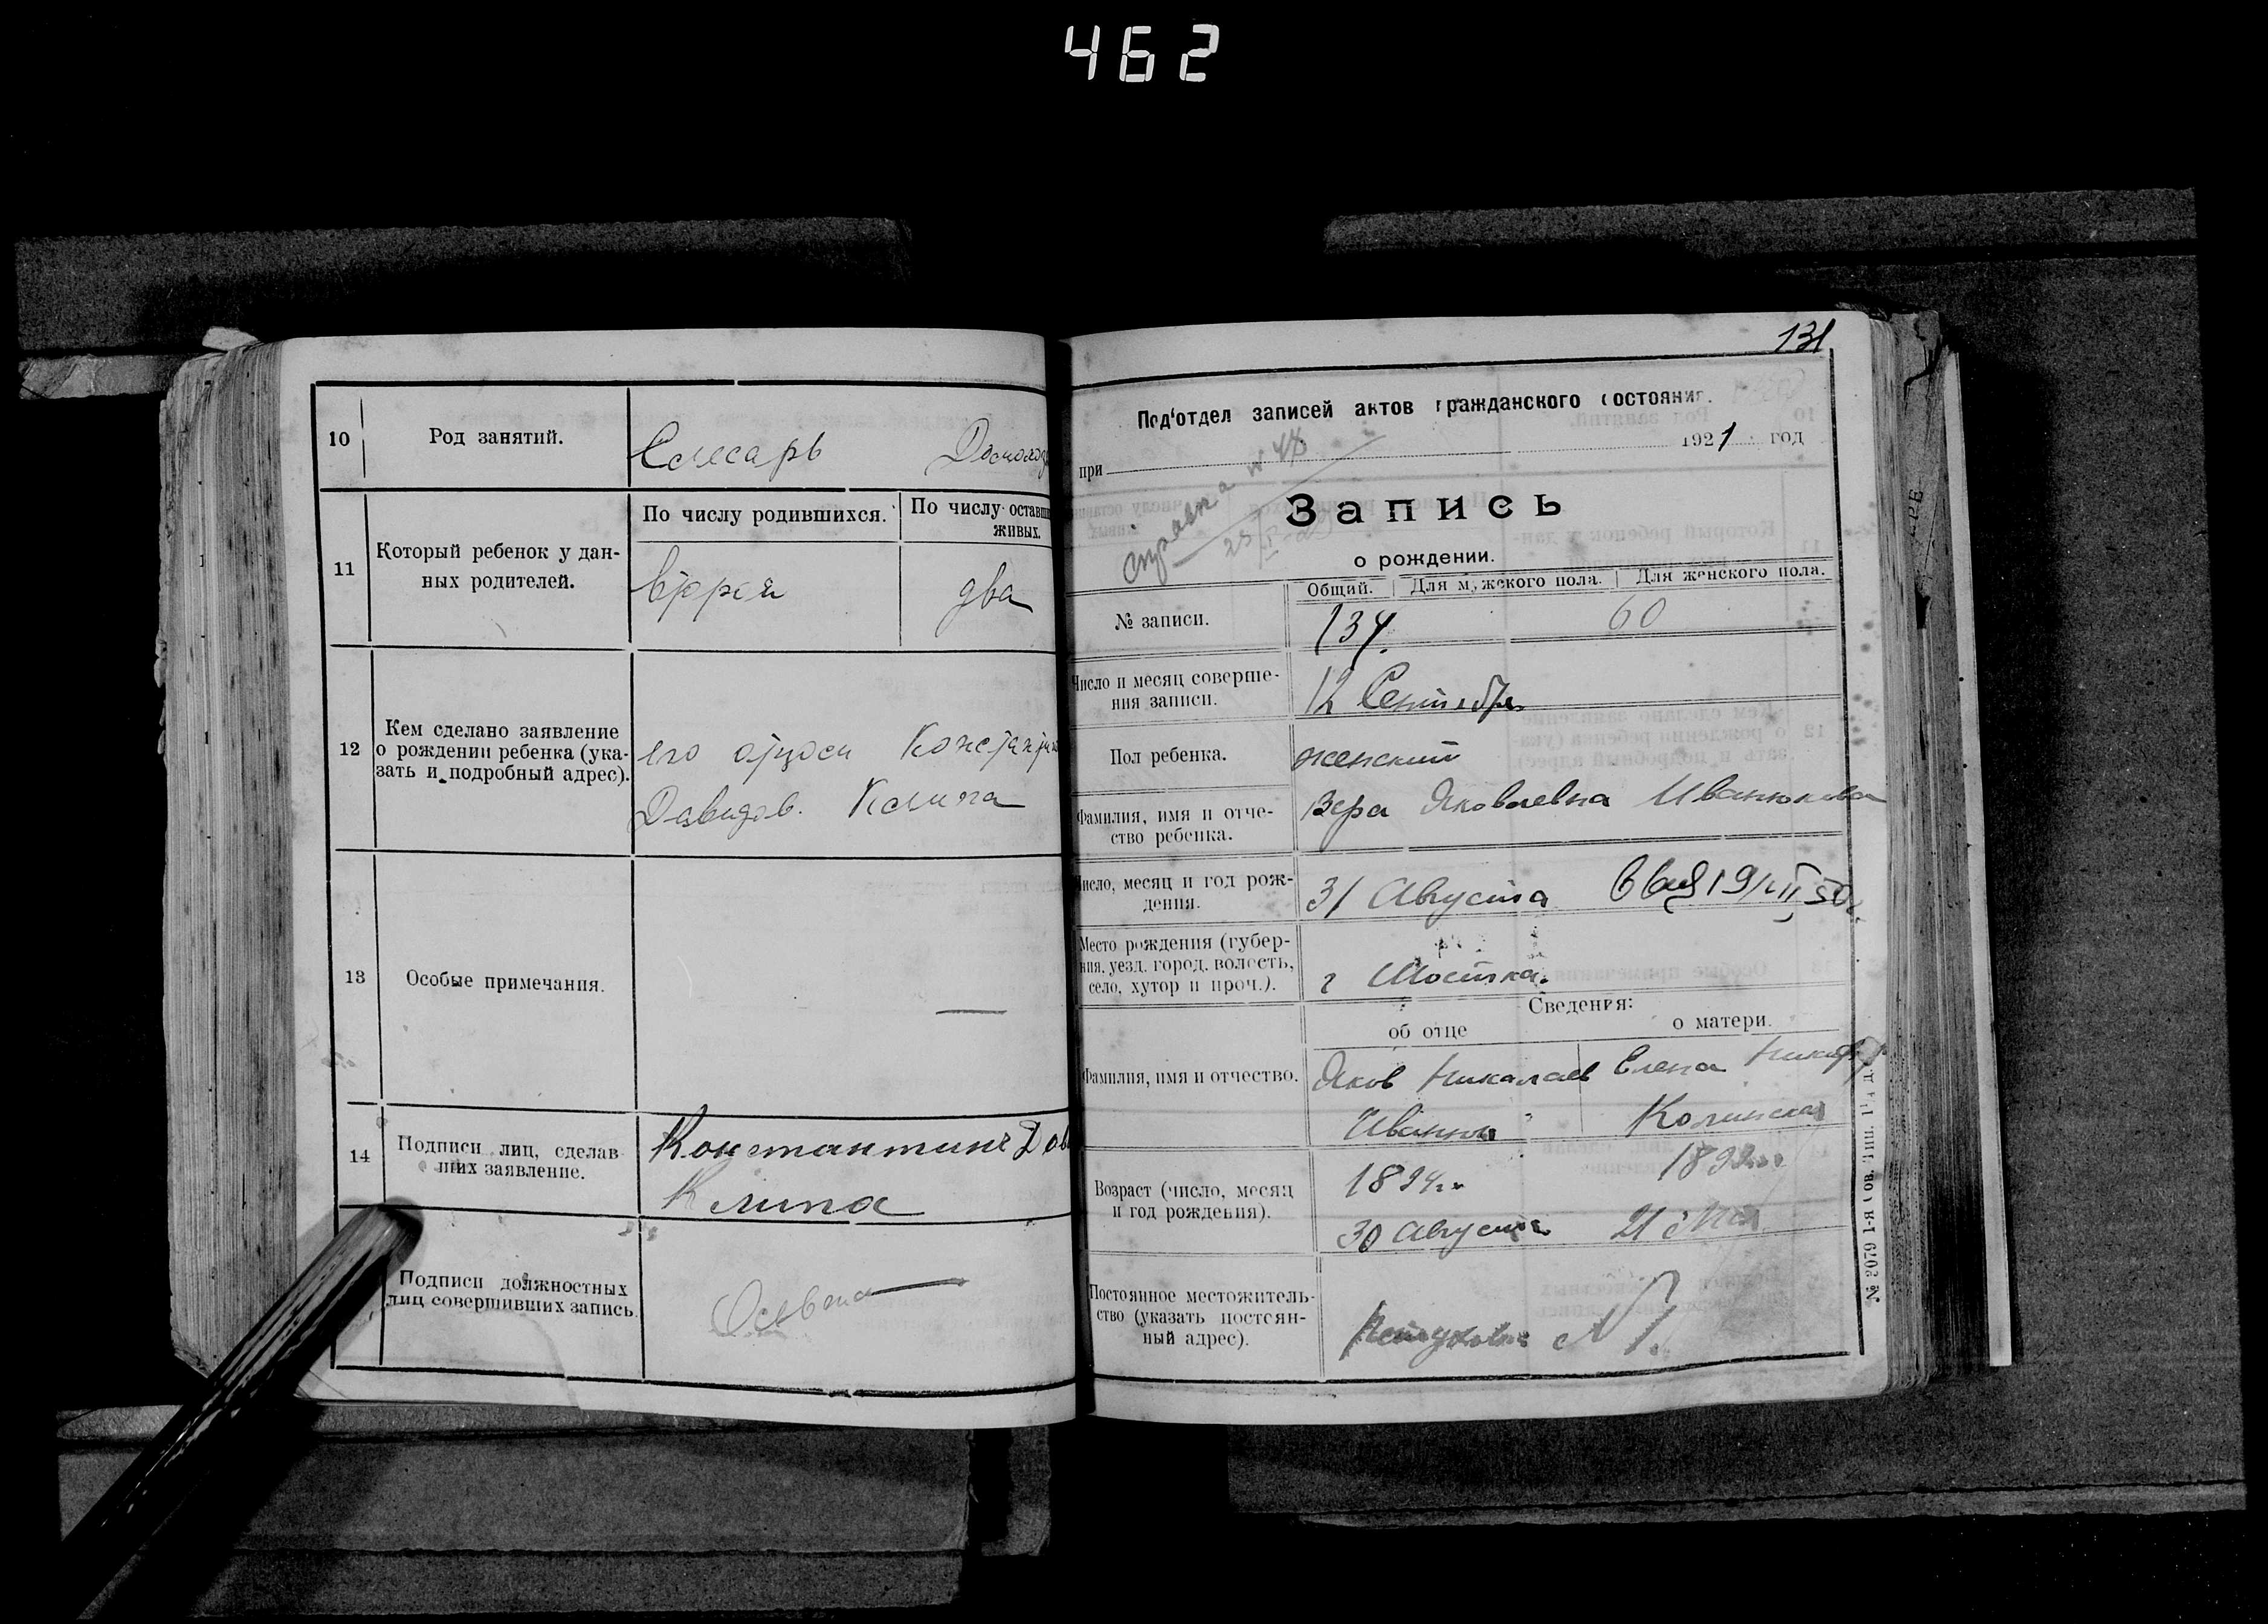 462
10
Род занятий.
Слесарь
11
Который ребенок у дан-
ных родителей.
По числу родившихся.
По числу оставш
живых.
второй
два
12
Кем сделано заявление
о рождении ребенка (ука-
зать и подробный адрес).
его отцом
Давидов. Клипа
13
Особые примечания.
—
14
Подписи лиц, сделав-
ших заявление.
Константинъ Дав
Клипа
Подписи должностных
лиц совершивших запись.
131
Под'отдел записей актов гражданского состояния.
при
1921 год
Запись
о рождении.
Общий.
Для мужского пола.
Для женского пола.
№ записи.
134.
60
Число и месяц соверше-
ния записи.
12 Сентября
Пол ребенка.
женский
Фамилия, имя и отче-
ство ребенка.
Вера Яковлевна Иванюкова
Число, месяц и год рож-
дения.
31 Августа
Место рождения (губер-
ния, уезд, город, волость,
село, хутор и проч.).
г Шостка.
Сведения:
об отце
о матери.
Фамилия, имя и отчество.
Яков Николаев
Елена
Возраст (число, месяц
и год рождения).
1894 г.
1892
30 Августа
21 Мая
Постоянное местожитель-
ство (указать постоян-
ный адрес).
№ 2079 1-я Сов. Тип.